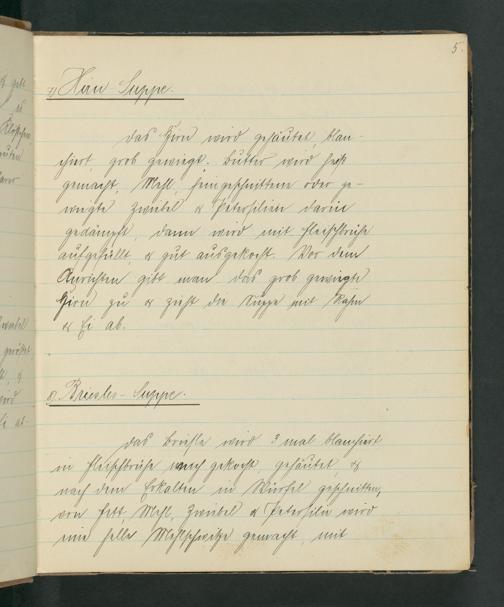 5.
7) Hirn Suppe.
Das Hirn wird gehäutet, blan-
chirt, grob gewiegt. Butter wird heiß
gemacht, Mehl, feingeschnittene oder ge-
wiegte Zwiebel & Petersilien darin
gedämpft, dann wird mit Fleischbrühe
aufgefüllt, & gut ausgekocht. Vor dem
Anrichten gibt man das grob gewiegte
Hirn zu & zieht die Suppe mit Rahm
& Ei ab.
8) Briesles-Suppe.
Das Briesle wird 3 mal blanchiert
in Fleischbrühe weich gekocht, gehäutet, &
nach dem Erkalten in Würfel geschnitten,
von Fett, Mehl, Zwiebel & Petersilie wird
eine helle Mehlschwitze gemacht, mit